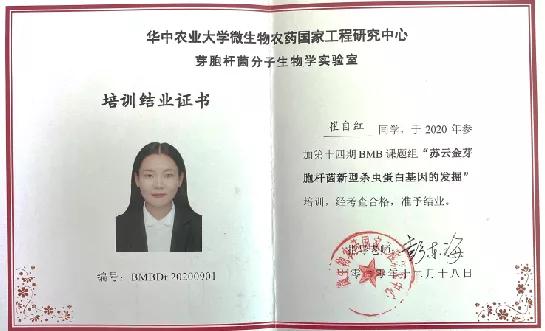 华中农业大学微生物农药国家工程研究中心
芽胞杆菌分子生物学实验室
培训结业证书
编号：BMBDt 20200901
崔自红 同学，于 2020 年参
加第十四期 BMB 课题组“苏云金芽
胞杆菌新型杀虫蛋白基因的发掘”
培训，经考查合格，准予结业。
彭东海
二〇二〇年十二月十八日